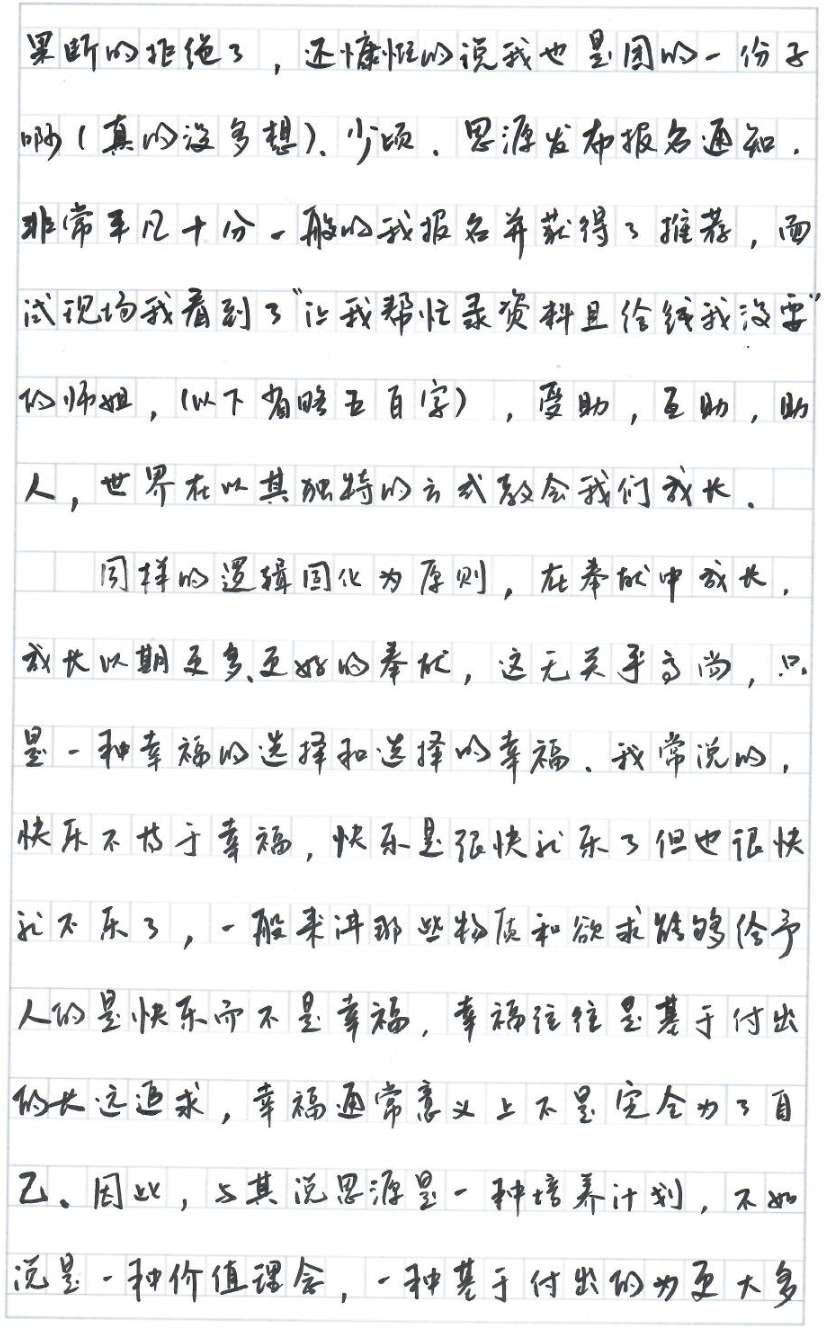 果断的拒绝了，还慷慨的说我也是团的一份子
啊（真的没多想）、少顷．思源发布报名通知．
非常平凡十分一般的我报名并获得了推荐，面
试现场我看到了“让我帮忙录资料且给钱我没要”
的师姐，（以下省略五百字），受助，互助，助
人，世界在以其独特的方式教会我们成长．
同样的逻辑固化为原则，在奉献中成长．
成长以期更多、更好的奉献，这无关乎高尚，只
是一种幸福的选择和选择的幸福、我常说的，
快乐不古于幸福，快乐是很快就乐了但也很快
就不乐了，一般来讲那些物质和欲求能够给予
人的是快乐而不是幸福，幸福往往是基于付出
的长远追求，幸福通常意义上不是完全为了自
己、因此，与其说思源是一种培养计划，不如
说是一种价值理念，一种基于付出的为更大多